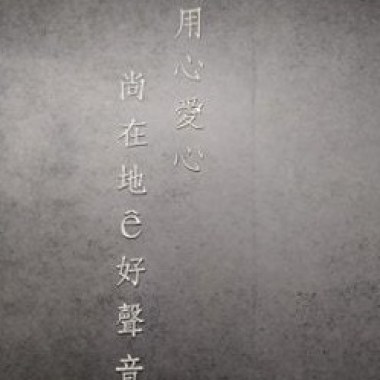 用心愛心
尚在地ê好聲音